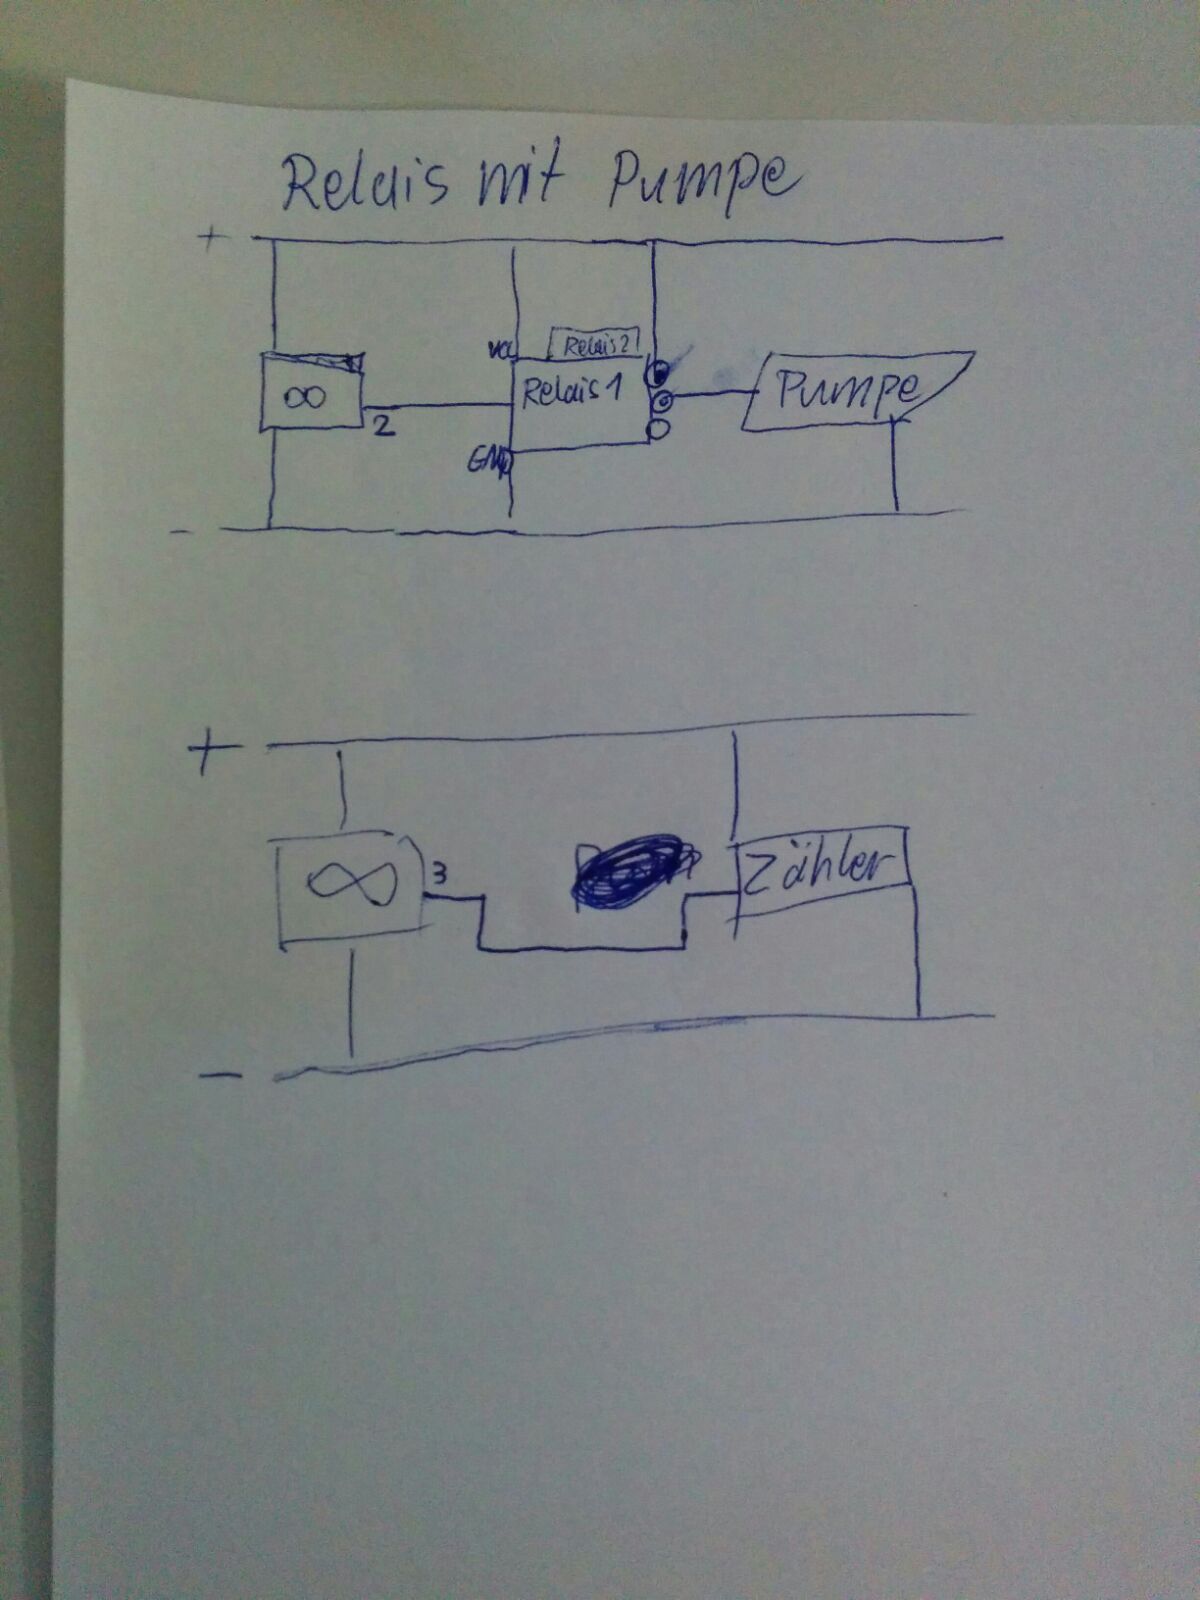 Relais mit Pumpe
+
Vcc
Relais 2
∞
2
Relais 1
Pumpe
GND
-
+
3
∞
Zähler
-